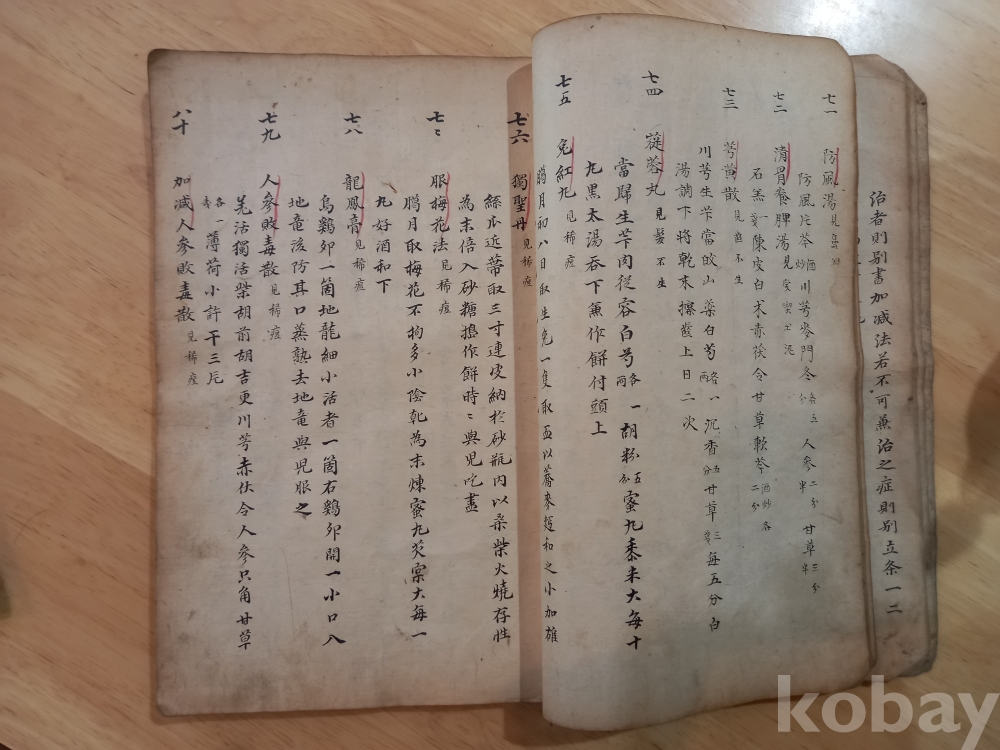 治者則別書加減法若不可兼治之症則別立条一二
七一
防風湯見
防風片芩酒炒川芎麥門冬各五分人參二分半甘草三分半
七二
清胃養脾湯見
石羔一戔陳皮白朮赤茯令甘草軟芩酒炒各二分
七三
芎黃散見齒不生
川芎生芐當故山藥白芍各一兩沉香五分甘草三戔每五分白
湯調下將乾末擦齒上日二次
七四
蓯蓉丸見髮不生
當歸生芐肉從容白芍各一兩胡粉五分蜜丸黍米大每十
丸黑太湯吞下兼作餅付頭上
七五
兔紅丸見稀痘
臘月初八日取生兔一隻取血以蕎麥麵和之小加雄
七六
獨聖丹見稀痘
絲瓜近蒂取三寸連皮納於砂瓶內以桑柴火燒存性
為末倍入砂糖搗作餅時〻與児吃盡
七〻
服梅花法見稀痘
臘月取梅花不拘多小陰乾為末煉蜜丸芡宲大每一
丸好酒和下
七八
龍鳳膏見稀痘
烏鷄卵一箇地龍細小活者一箇右鷄卵開一小口入
地竜後防其口蒸熟去地竜與児服之
七九
人參敗毒散見稀痘
羌活獨活柴胡前胡吉更川芎赤伏令人參只角甘草
各一戔薄荷小許干三片
八十
加減人參敗毒散見稀痘
kobay